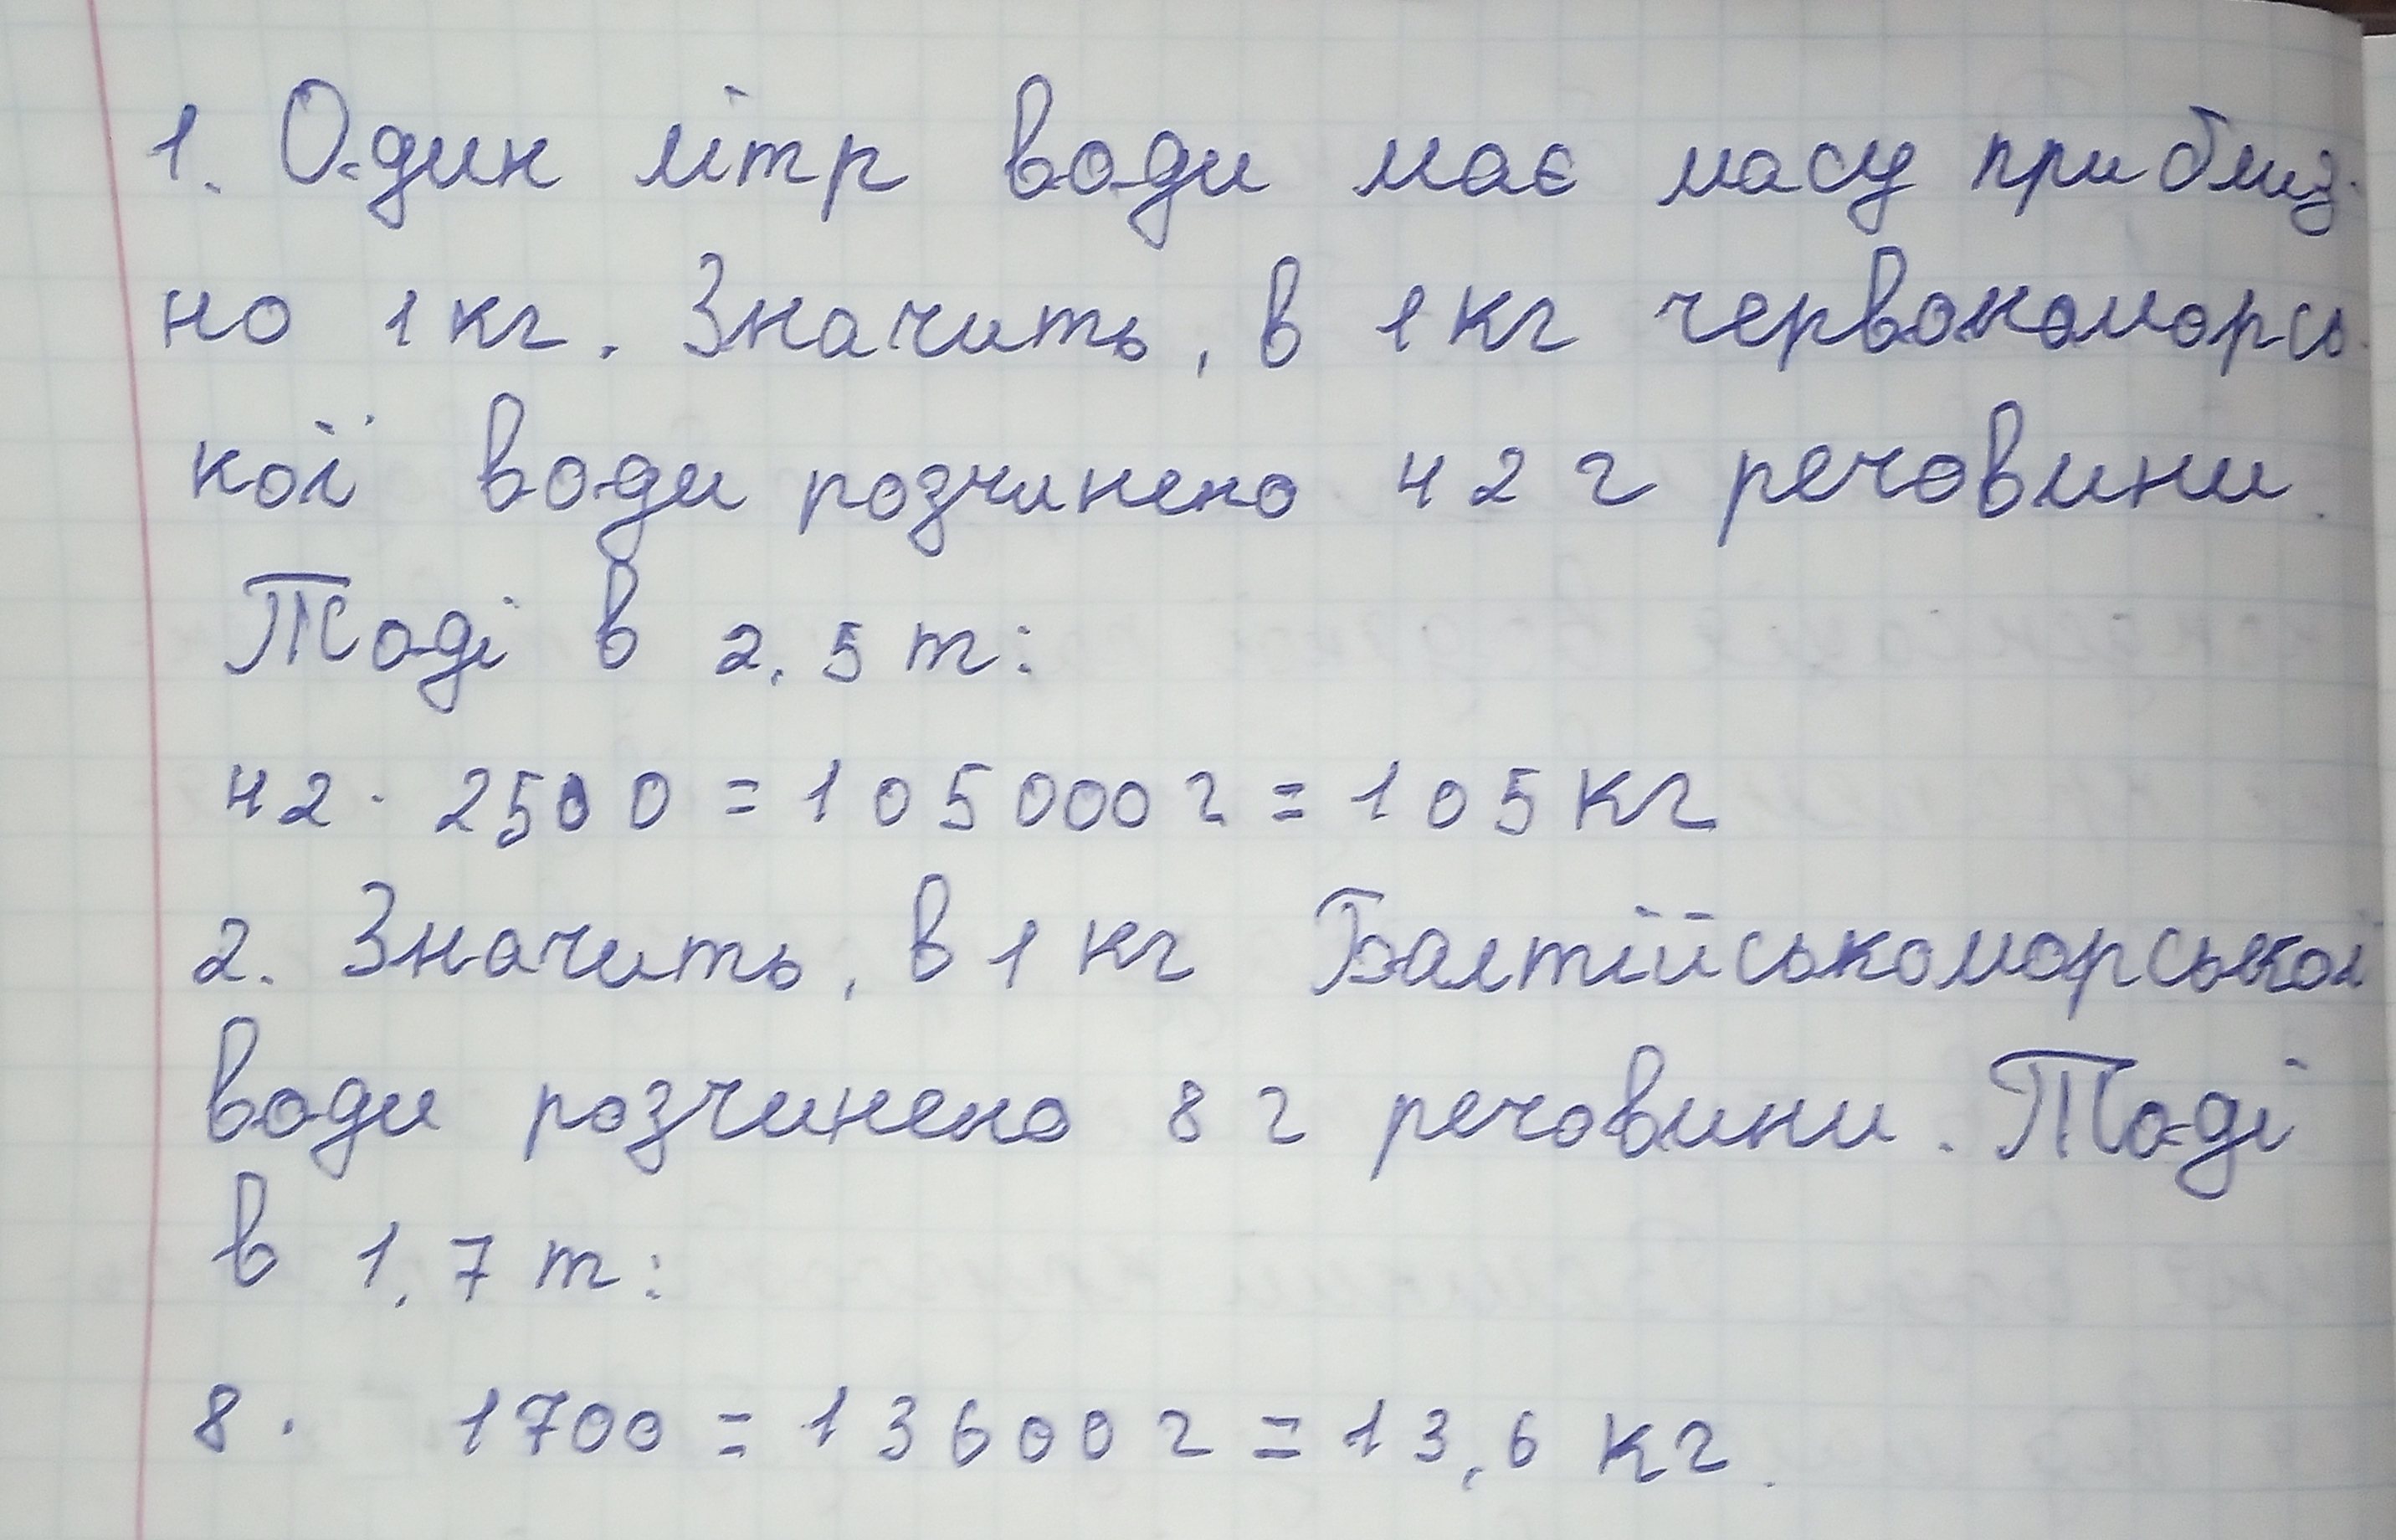 1. Один літр води має масу приблиз-
но 1 кг. Значить, в 1 кг червономорсь-
кої води розчинено 42 г речовини.
Тоді в 2,5 т:
42 · 2500 = 105000 г = 105 кг
2. Значить, в 1 кг Балтійськоморської
води розчинено 8 г речовини. Тоді
в 1,7 т:
8 · 1700 = 13600 г = 13,6 кг.